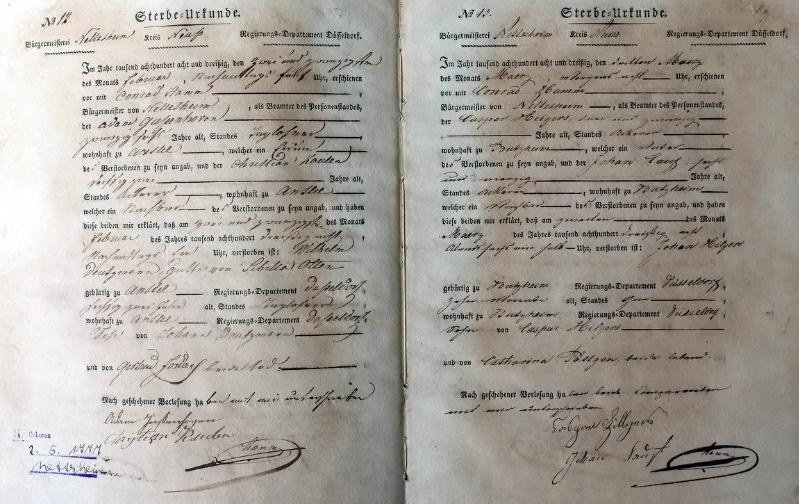 No 12.
Sterbe-Urkunde.
Bürgermeisterei Nettesheim Kreis Neuß Regierungs-Departement Düsseldorf.
Im Jahr tausend achthundert acht und dreißig, den zwei und zwanzigsten
des Monats Februar, Nachmittags fünf Uhr, erschienen
vor mir Conrad Hamm
Bürgermeister von Nettesheim, als Beamter des Personenstandes,
der Adam
zwanzig sechs Jahre alt, Standes Taglöhner
wohnhaft zu Anstel, welcher ein
des Verstorbenen zu seyn angab, und der Christian Kaulen
sechszig zwei Jahre alt,
Standes Ackerer, wohnhaft zu Anstel
welcher ein Nachbar des Verstorbenen zu seyn angab, und haben
diese beiden mir erklärt, daß am zwei und zwanzigsten des Monats
Februar des Jahres tausend achthundert dreißig acht
Nachmittags ein Uhr, verstorben ist: Wilhelm
Deutzmann Gatte von Sibilla Olten
gebürtig zu Anstel Regierungs-Departement Düsseldorf
sechzig zwei Jahre alt, Standes Taglöhner
wohnhaft zu Anstel Regierungs-Departement Düsseldorf
Sohn von Johann Deutzmann
und von Gertrud beide todt.
Nach geschehener Vorlesung haben mit mir unterschrieben
Adam
Christian Kaulen
Hamm
Geboren
2. 5. 1777
Nettesheim
No 13.
Sterbe-Urkunde.
Bürgermeisterei Nettesheim Kreis Neuss Regierungs-Departement Düsseldorf.
Im Jahr tausend achthundert acht und dreißig, den dritten Maerz
des Monats Maerz, Morgens acht Uhr, erschienen
vor mir Conrad Hamm
Bürgermeister von Nettesheim, als Beamter des Personenstandes,
der Caspar Hilgers, drei und zwanzig
Jahre alt, Standes Ackerer
wohnhaft zu Butzheim, welcher ein Vater
des Verstorbenen zu seyn angab, und der Johan
und Jahre alt,
Standes Ackerer, wohnhaft zu Butzheim
welcher ein Nachbar des Verstorbenen zu seyn angab, und haben
diese beiden mir erklärt, daß am zweiten des Monats
Maerz des Jahres tausend achthundert dreißig acht
Abends sechs ein halb Uhr, verstorben ist: Johan Hilgers
gebürtig zu Butzheim Regierungs-Departement Düsseldorf
zehn Monate alt, Standes ohne
wohnhaft zu Butzheim Regierungs-Departement Düsseldorf
Sohn von Caspar Hilgers
und von Catharina Päffgen beide lebend
Nach geschehener Vorlesung haben beide Comparenten
mit mir unterschrieben
Johan
Hamm